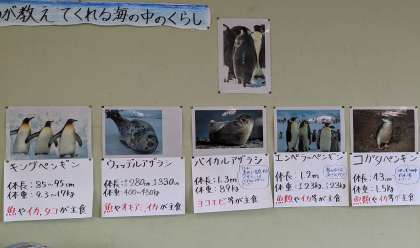 が教えてくれる海の中のくらし
キングペンギン
体長：85〜95cm
体重：9.3〜17kg
魚やイカ、タコが主食
ウェッデルアザラシ
体重：400-450kg
魚やオキアミ、イカが主食
バイカルアザラシ
体長：1.3m
体重：89kg
ヨコエビ等が主食
エンペラーペンギン
体長：1.2m
魚類やイカ等が主食
コガタペンギン
体長：43cm
体重：1.5kg
魚類やイカ等が主食